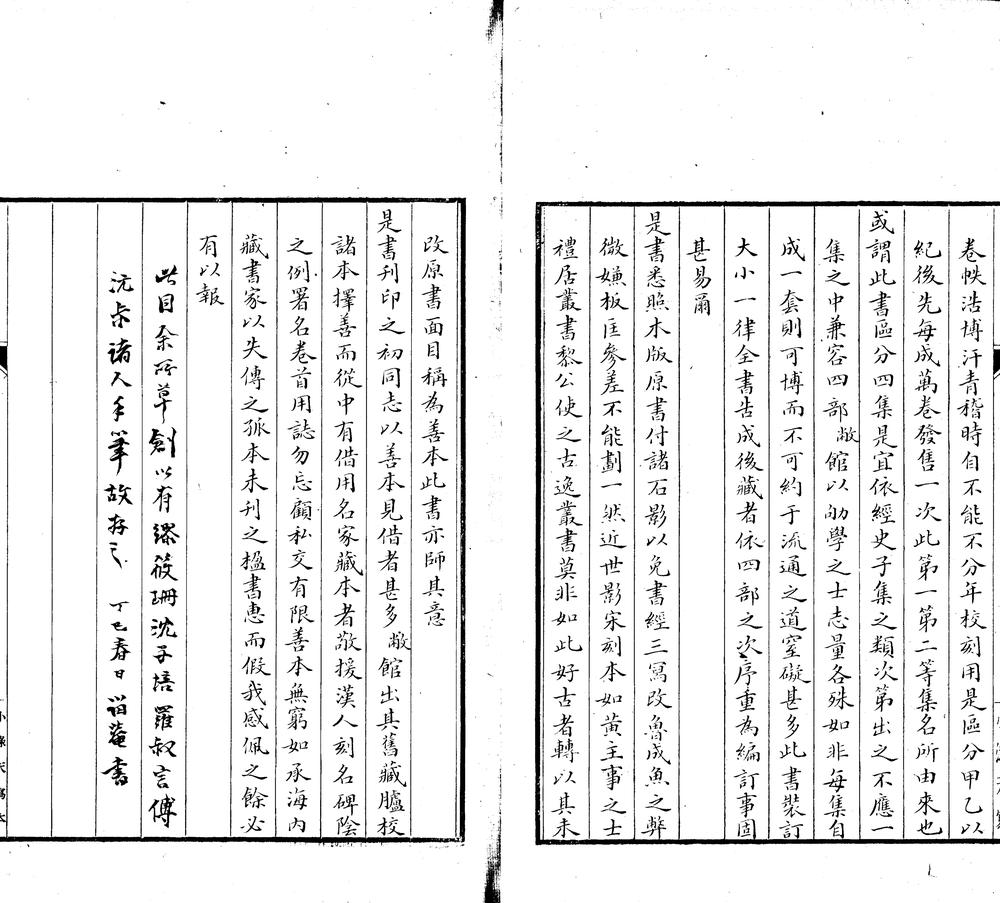 卷帙浩博汗青稽時自不能不分年校刻用是區分甲乙以
紀後先每成萬卷發售一次此第一第二等集名所由來也
或謂此書區分四集是宜依經史子集之類次第出之不應一
集之中兼容四部敝館以劬學之士志量各殊如非每集自
成一套則可博而不可約于流通之道窒礙甚多此書裝訂
大小一律全書告成後藏者依四部之次序重為編訂事固
甚易爾
是書悉照木版原書付諸石影以免書經三寫改魯成魚之弊
微嫌板匡參差不能劃一然近世影宋刻本如黃主事之士
禮居叢書黎公使之古逸叢書莫非如此好古者轉以其未
改原書面目稱為善本此書亦師其意
是書刊印之初同志以善本見借者甚多敝館出其舊藏臚校
諸本擇善而從中有借用名家藏本者敬援漢人刻名碑陰
之例署名卷首用誌勿忘顧私交有限善本無窮如承海內
藏書家以失傳之孤本未刊之楹書惠而假我感佩之餘必
有以報
此目余所草創以有繆筱珊沈子培羅叔言傅
沅叔諸人手筆故存之 丁巳春日 諧菴書